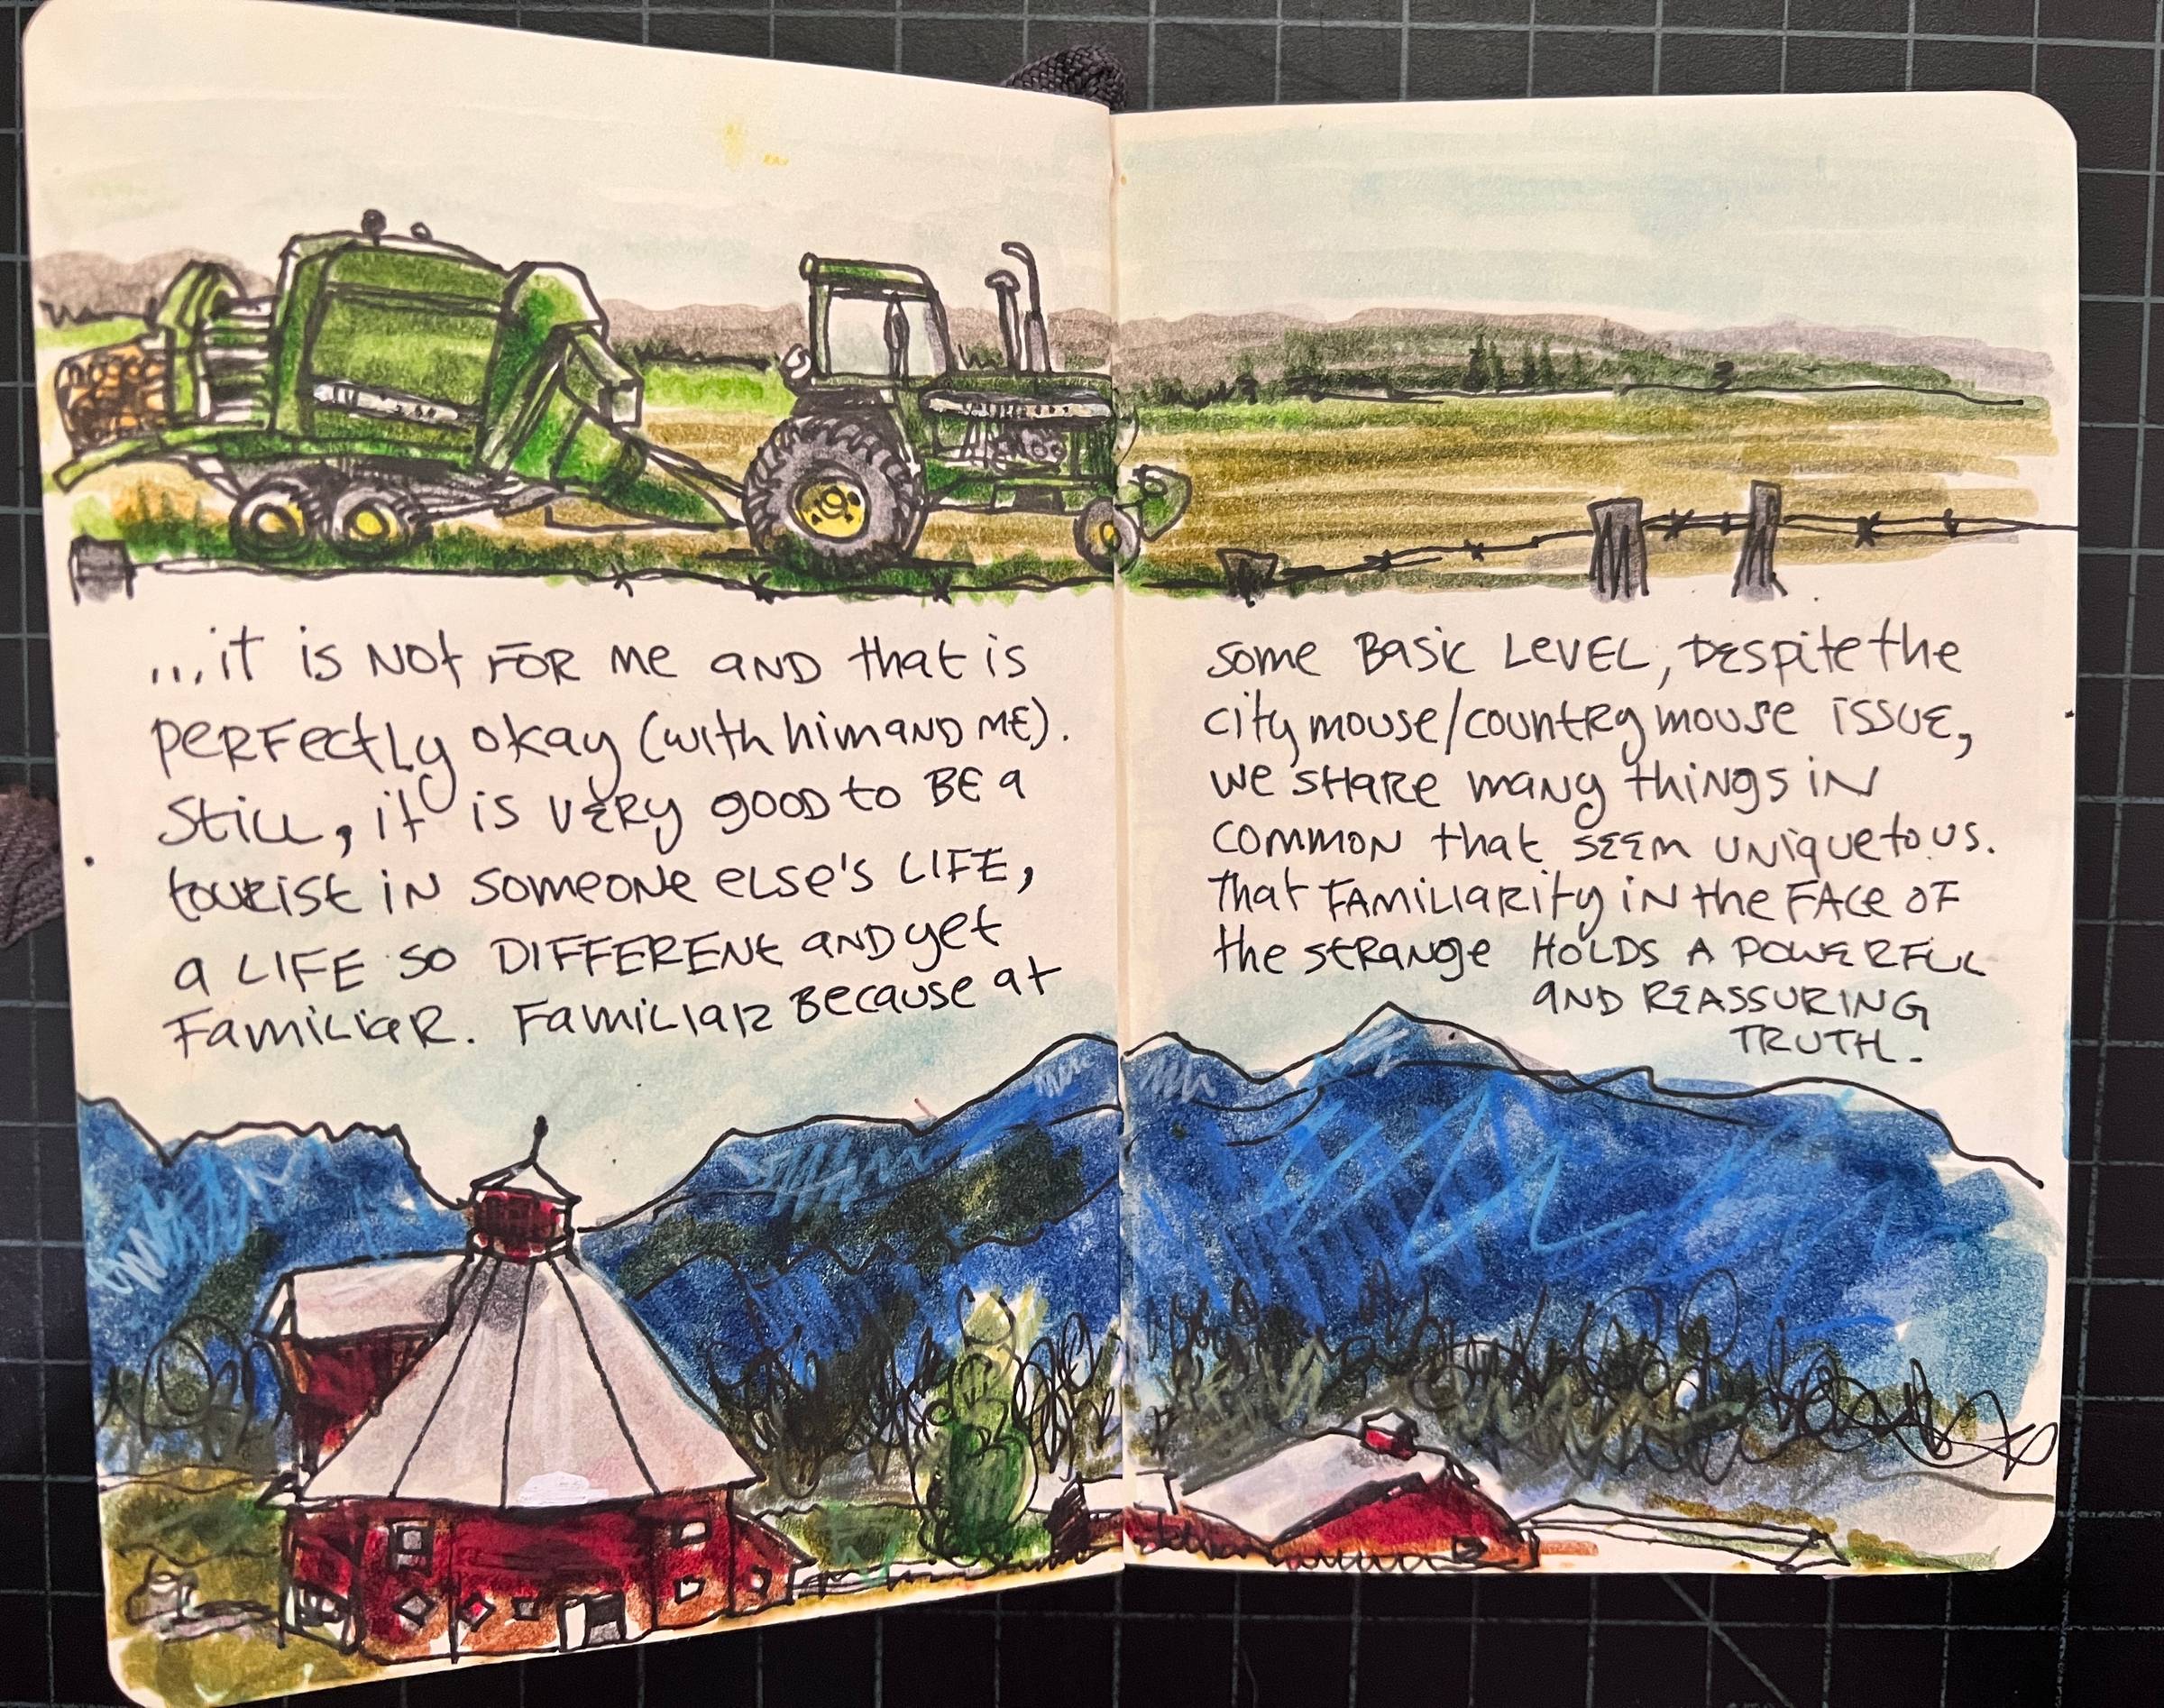 ...it is NOT FOR me AND that is
PERFECTLY okay (with him AND ME).
Still, it is VERY good to BE a
tourist in someone else's LIFE,
a LIFE so DIFFERENT AND yet
Familiar. Familiar Because at
some Basic Level, Despite the
city mouse/country mouse issue,
we share many things in
common that seem unique to us.
That Familiarity in the Face of
the strange HOLDS A POWERFUL
AND REASSURING
TRUTH.